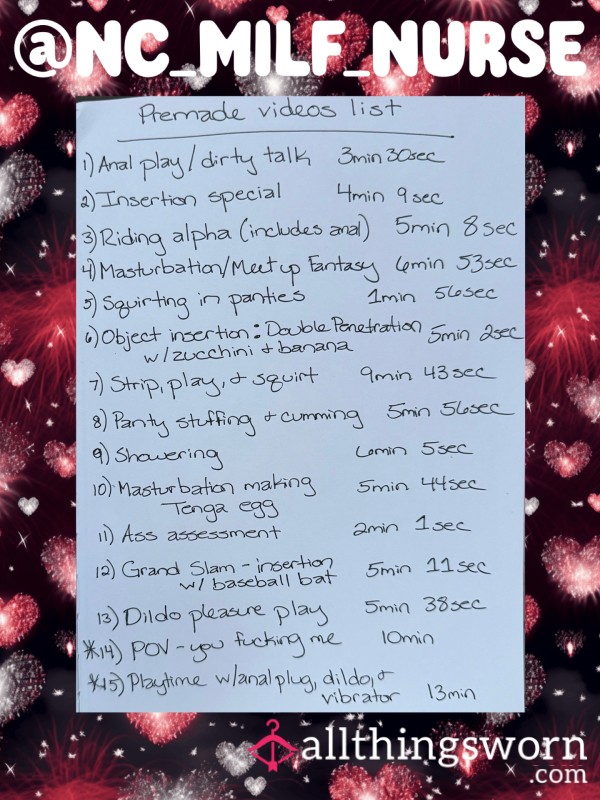 @NC_MILF_NURSE
Premade videos list
1) Anal play/dirty talk 3min 30sec
2) Insertion special 4min 9sec
3) Riding alpha (includes anal) 5min 8sec
4) Masturbation/Meetup Fantasy 6min 53sec
5) Squirting in panties 1min 56sec
6) Object insertion: Double Penetration 5min 2sec
w/zucchini & banana
7) Strip, play, & squirt 9min 43sec
8) Panty stuffing & cumming 5min 56sec
9) Showering 6min 5sec
10) Masturbation making 5min 44sec
Tenga egg
11) Ass assessment 2min 1sec
12) Grand Slam - insertion 5min 11sec
w/ baseball bat
13) Dildo pleasure play 5min 38sec
*14) POV - you fucking me 10min
*15) Playtime w/anal plug, dildo, &
vibrator 13min
allthingsworn
.com